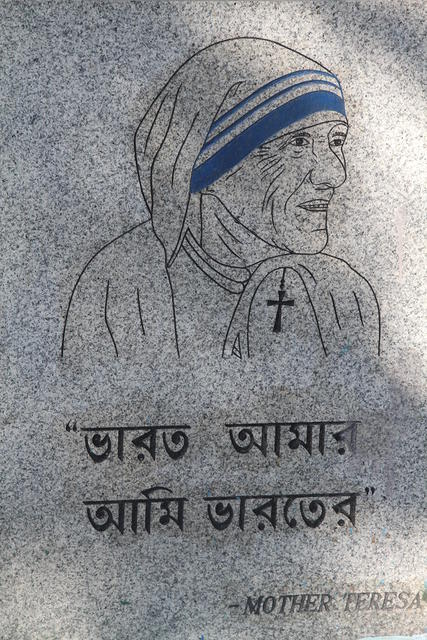 “ভারত আমার
আমি ভারতের”
-MOTHER TERESA